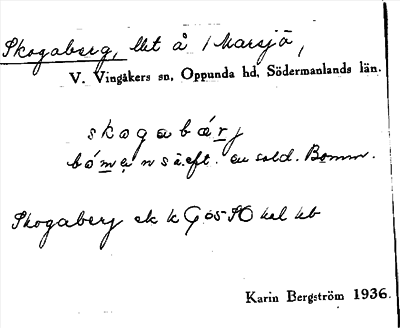 Skogaberg, llt å 1 Marsjö,
V. Vingåkers sn, Oppunda hd, Södermanlands län.
skogabárj
bómans äft. en sold. Bomm.
Skogaberg ek k G 65 SO kal kb
Karin Bergström 1936.